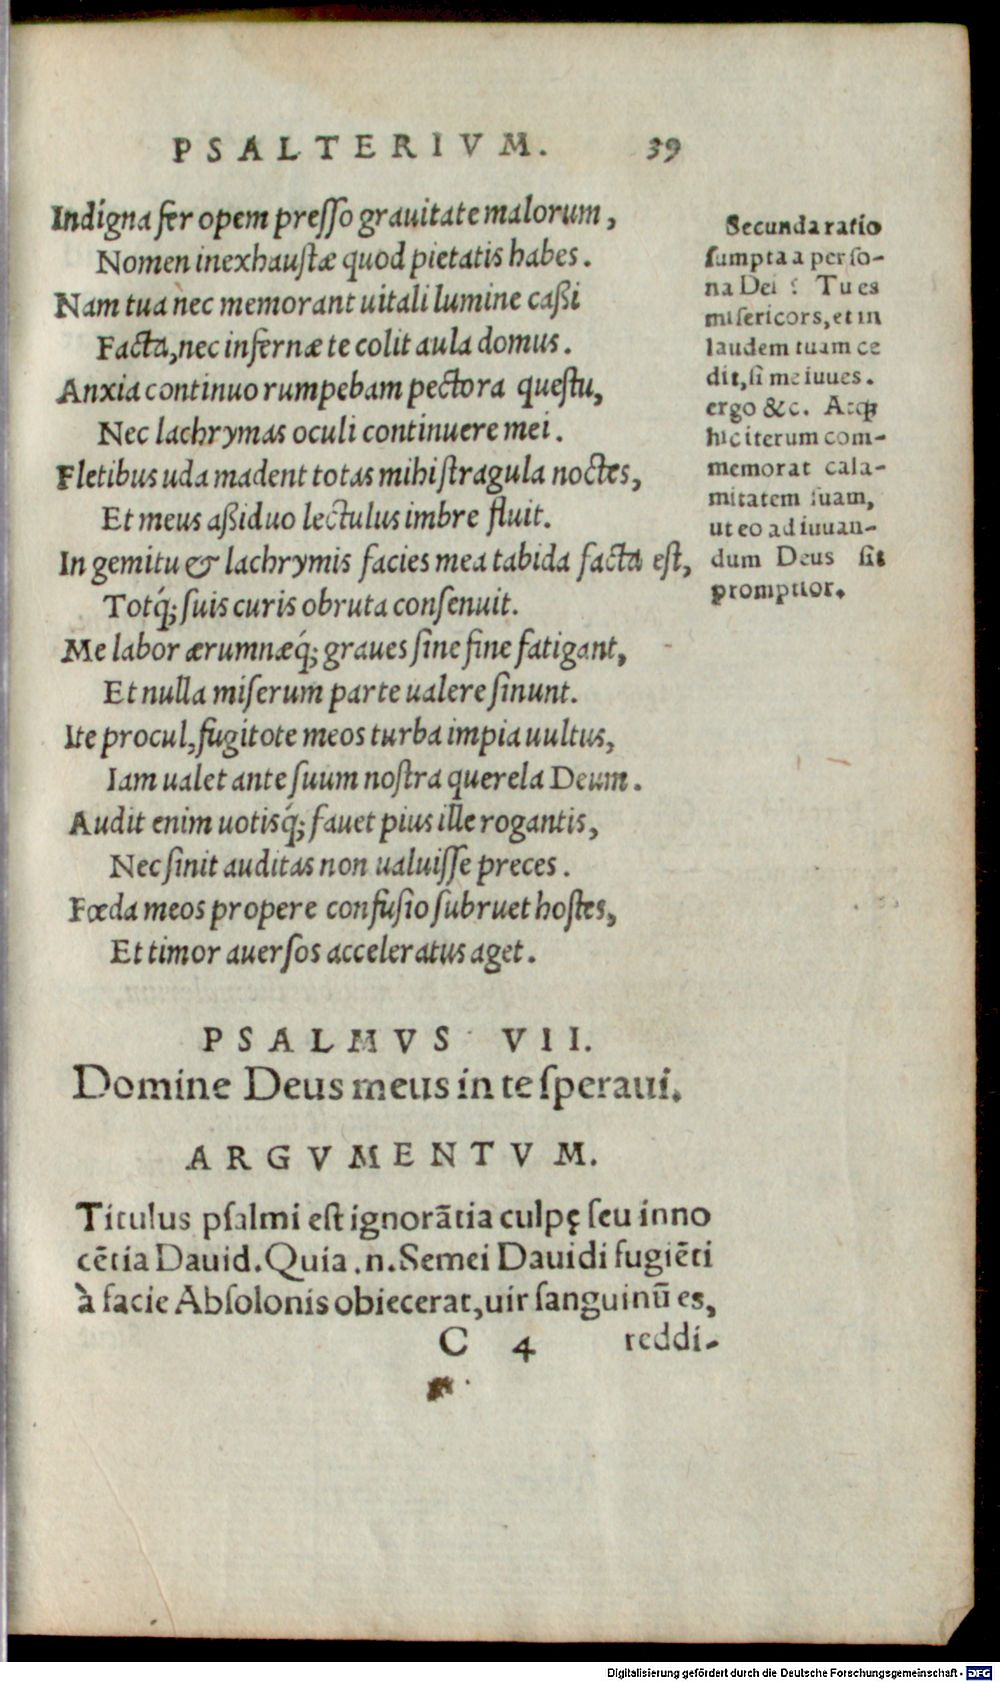 PSALTERIVM. 39
Indigna fer opem presso grauitate malorum,
Nomen inexhaustæ quod pietatis habes.
Nam tua nec memorant uitali lumine caßi
Facta, nec infernæ te colit aula domus.
Anxia continuo rumpebam pectora questu,
Nec lachrymas oculi continuere mei.
Fletibus uda madent totas mihi stragula noctes,
Et meus aßiduo lectulus imbre fluit.
In gemitu & lachrymis facies mea tabida facta est,
Totq́; suis curis obruta consenuit.
Me labor ærumnæq́; graues sine fine fatigant,
Et nulla miserum parte ualere sinunt.
Ite procul, fugitote meos turba impia uultus,
Iam ualet ante suum nostra querela Deum.
Audit enim uotisq́; fauet pius ille rogantis,
Nec sinit auditas non ualuisse preces.
Fœda meos propere confusio subruet hostes,
Et timor auersos acceleratus aget.
Secunda ratio
sumpta a perso-
na Dei : Tu es
misericors, et in
laudem tuam ce
dit, si me iuues.
ergo &c. Atqꝫ
hic iterum com-
memorat cala-
mitatem suam,
ut eo ad iuuan-
dum Deus sit
promptior.
PSALMVS VII.
Domine Deus meus in te speraui.
ARGVMENTVM.
Titulus psalmi est ignorãtia culpę seu inno
cẽtia Dauid. Quia .n. Semei Dauidi fugiẽti
à facie Absolonis obiecerat, uir sanguinũ es,
C 4 reddi-
Digitalisierung gefördert durch die Deutsche Forschungsgemeinschaft - DFG